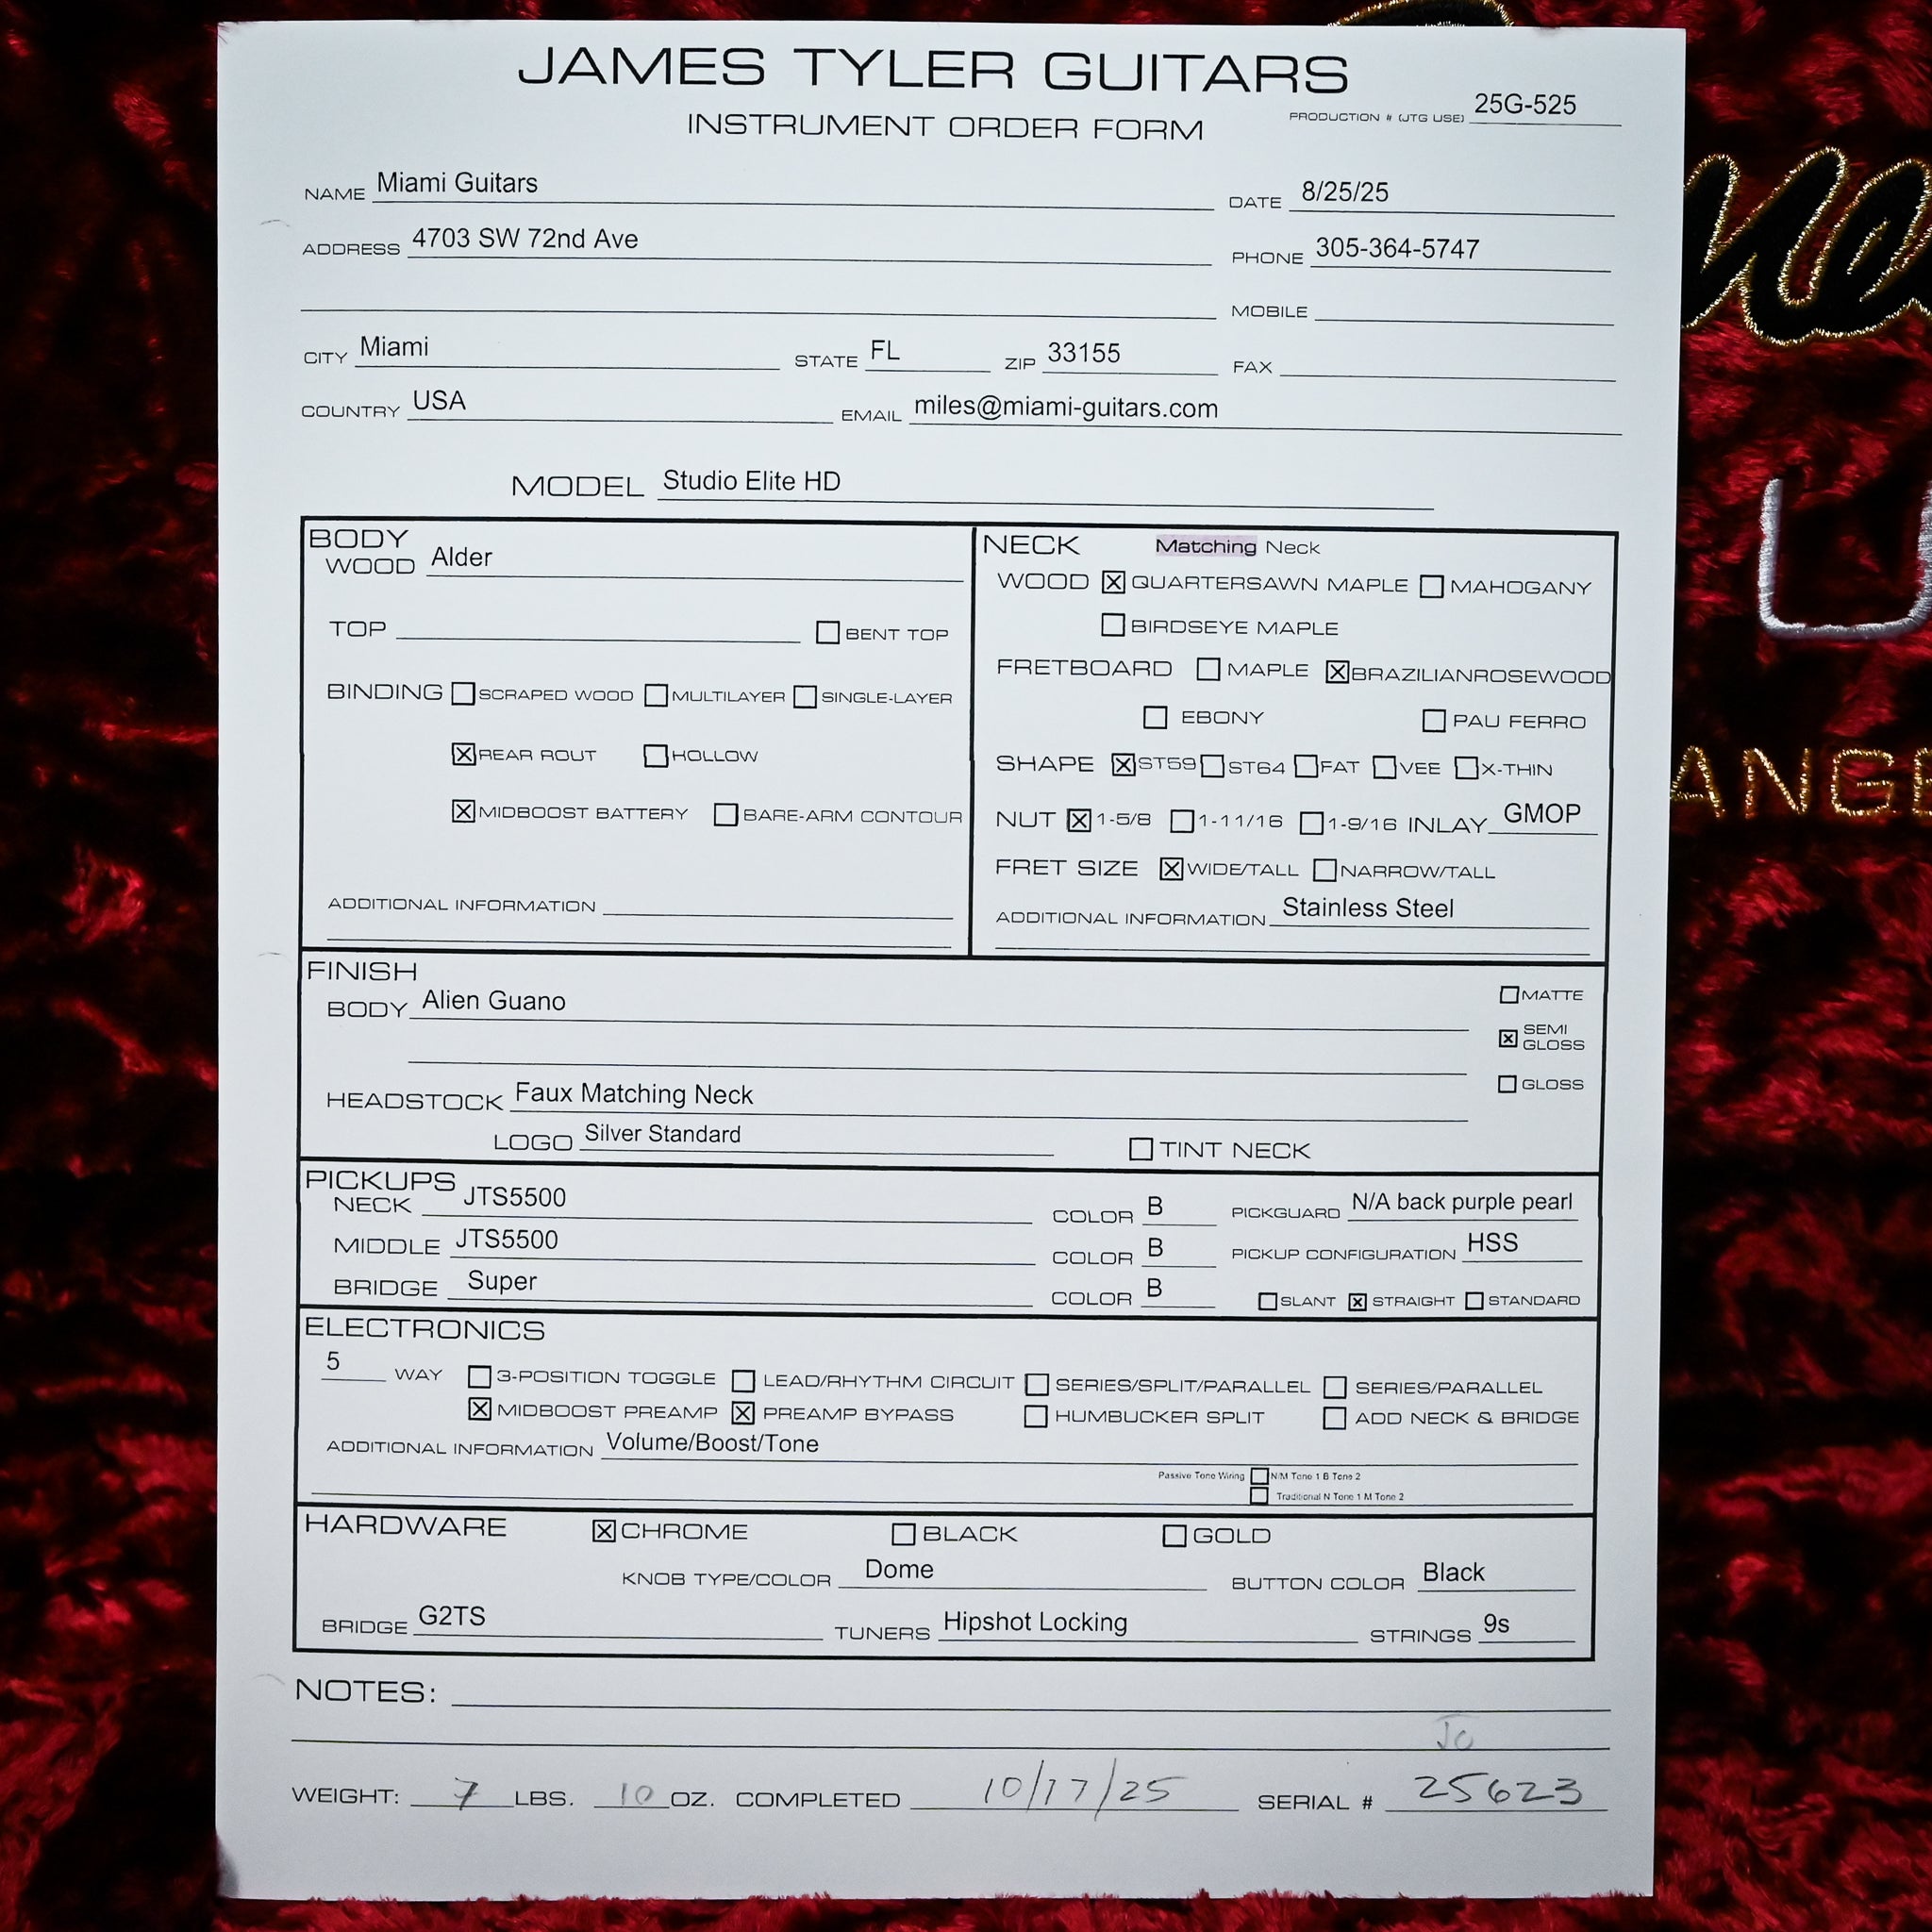 JAMES TYLER GUITARS
INSTRUMENT ORDER FORM
PRODUCTION # (JTG USE) 25G-525
NAME Miami Guitars DATE 8/25/25
ADDRESS 4703 SW 72nd Ave PHONE 305-364-5747
MOBILE
CITY Miami STATE FL ZIP 33155 FAX
COUNTRY USA EMAIL miles@miami-guitars.com
MODEL Studio Elite HD
BODY
WOOD Alder
TOP BENT TOP
BINDING SCRAPED WOOD MULTILAYER SINGLE-LAYER
X REAR ROUT HOLLOW
X MIDBOOST BATTERY BARE-ARM CONTOUR
ADDITIONAL INFORMATION
NECK Matching Neck
WOOD X QUARTERSAWN MAPLE MAHOGANY
BIRDSEYE MAPLE
FRETBOARD MAPLE X BRAZILIANROSEWOOD
EBONY PAU FERRO
SHAPE X ST59 ST64 FAT VEE X-THIN
NUT X 1-5/8 1-11/16 1-9/16 INLAY GMOP
FRET SIZE X WIDE/TALL NARROW/TALL
ADDITIONAL INFORMATION Stainless Steel
FINISH
BODY Alien Guano
MATTE
X SEMI GLOSS
GLOSS
HEADSTOCK Faux Matching Neck
LOGO Silver Standard TINT NECK
PICKUPS
NECK JTS5500 COLOR B PICKGUARD N/A back purple pearl
MIDDLE JTS5500 COLOR B PICKUP CONFIGURATION HSS
BRIDGE Super COLOR B SLANT X STRAIGHT STANDARD
ELECTRONICS
5 WAY 3-POSITION TOGGLE LEAD/RHYTHM CIRCUIT SERIES/SPLIT/PARALLEL SERIES/PARALLEL
X MIDBOOST PREAMP X PREAMP BYPASS HUMBUCKER SPLIT ADD NECK & BRIDGE
ADDITIONAL INFORMATION Volume/Boost/Tone
Passive Tone Wiring N/M Tone 1 B Tone 2
Traditional N Tone 1 M Tone 2
HARDWARE X CHROME BLACK GOLD
KNOB TYPE/COLOR Dome BUTTON COLOR Black
BRIDGE G2TS TUNERS Hipshot Locking STRINGS 9s
NOTES:
WEIGHT: 7 LBS. 10 OZ. COMPLETED 10/17/25 SERIAL # 25623
ANGE